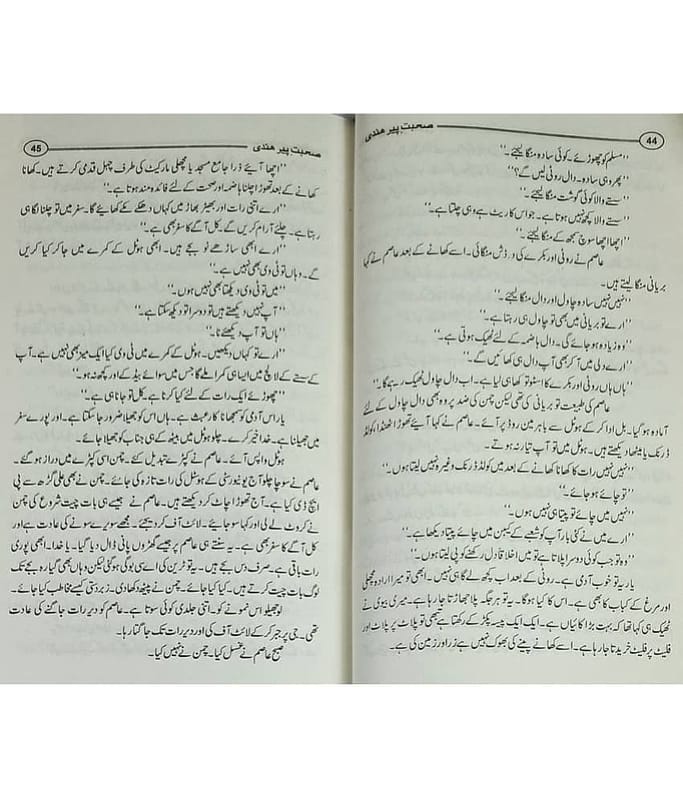 44
صحبتِ پیر هندی
’’مسلم کو چھوڑئے۔ کوئی سادہ منگا لیجئے۔‘‘
’’پھر وہی سادہ۔ دال روٹی لیں گے؟‘‘
’’سستے والا کوئی گوشت منگا لیجئے۔‘‘
’’سستے والا کچھ نہیں ہوتا ہے۔ جو اس کا ریٹ ہے وہی چلتا ہے۔‘‘
’’اچھا اچھا سوچ سمجھ کے منگا لیجئے۔‘‘
عاصم نے روٹی اور بکرے کی دو ڈش منگائی۔ اسے کھانے کے بعد عاصم نے کہا
بریانی منگا لیتے ہیں۔
’’نہیں نہیں سادہ چاول اور دال منگا لیجئے۔‘‘
’’ارے تو بریانی میں بھی تو چاول ہی رہتا ہے۔‘‘
’’وہ زیادہ ہو جائے گی۔ دال ہاضمہ کے لئے ٹھیک ہوتی ہے۔‘‘
’’ارے دلی میں آ کر بھی آپ دال ہی کھائیں گے۔‘‘
’’ہاں ہاں روٹی اور بکرے کا اسٹو تو کھا ہی لیا ہے۔ اب دال چاول ٹھیک رہے گا۔‘‘
عاصم کی طبیعت تو بریانی کی تھی لیکن چمن کی ضد پر وہ بھی دال چاول کے لئے
آمادہ ہو گیا۔ بل ادا کر کے ہوٹل سے باہر مین روڈ پر آئے۔ عاصم نے کہا آیئے تھوڑا ٹھنڈا کولڈ
ڈرنک یا میٹھا دیکھتے ہیں۔ ہوٹل میں تو آپ تیار نہ ہوتے۔
’’نہیں نہیں رات کا کھانا کھانے کے بعد میں کولڈ ڈرنک وغیرہ نہیں لیتا ہوں۔‘‘
’’تو چائے ہو جائے۔‘‘
’’نہیں میں چائے تو پیتا ہی نہیں ہوں۔‘‘
’’ارے میں نے کئی بار آپ کو شعبے کے کیبن میں چائے پیتا دیکھا ہے۔‘‘
’’وہ تو جب کوئی دوسرا پلاتا ہے تو میں اخلاقاً دل رکھنے کو پی لیتا ہوں۔‘‘
یار یہ تو خوب آدمی ہے۔ روٹی کے بعد اب کچھ لے گا ہی نہیں۔ ابھی تو میرا ارادہ مچھلی
اور مرغ کے کباب کا بھی ہے۔ اس کا کیا ہوگا۔ یہ تو ہر جگہ پلا جھاڑتا جا رہا ہے۔ میری بیوی نے
ٹھیک ہی کہا تھا کہ بہت بڑا کائیاں ہے۔ ایک ایک پیسہ پکڑ کے رکھتا ہے تبھی تو پلاٹ پر پلاٹ اور
فلیٹ پر فلیٹ خریدتا جا رہا ہے۔ اسے کھانے پینے کی بھوک نہیں ہے زر اور زمین کی ہے۔
45
صحبتِ پیر هندی
’’اچھا آیئے ذرا جامع مسجد یا مچھلی مارکیٹ کی طرف چہل قدمی کرتے ہیں۔ کھانا
کھانے کے بعد تھوڑا چلنا ہاضمہ اور صحت کے لئے فائدہ مند ہوتا ہے۔‘‘
’’ارے اتنی رات اور بھیڑ بھاڑ میں کہاں دھکے کھایئے گا۔ سفر میں تو چلنا لگا ہی
رہتا ہے۔ چلئے آرام کریں گے۔ کل آگے کا سفر بھی ہے۔‘‘
’’ارے ابھی ساڑھے نو بجے ہیں۔ ابھی ہوٹل کے کمرے میں جا کر کیا کریں
گے۔ وہاں تو ٹی وی بھی نہیں ہے۔‘‘
’’میں تو ٹی وی دیکھتا بھی نہیں ہوں۔‘‘
’’آپ نہیں دیکھتے ہیں تو دوسرا تو دیکھ سکتا ہے۔‘‘
’’ہاں تو آپ دیکھئے نا۔‘‘
’’ارے تو کہاں دیکھیں۔ ہوٹل کے کمرے میں ٹی وی کیا ایک میز بھی نہیں ہے۔ آپ
کے سستے کے لالچ میں ایسا ہی کمرا ملے گا جس میں سوائے بیڈ کے اور کچھ نہ ہو۔‘‘
’’چھوڑئے ایک رات کے لئے کیا کرنا ہے۔ کل تو جانا ہی ہے۔‘‘
یار اس آدمی کو سمجھانا کارِ عبث ہے۔ ہاں اس کو جھیلا ضرور جا سکتا ہے۔ اور پورے سفر
میں جھیلنا ہے۔ خدا خیر کرے۔ چلو ہوٹل میں بیٹھ کے ہی جناب کو جھیلا جائے۔
ہوٹل واپس آئے۔ عاصم نے کپڑے تبدیل کئے۔ چمن اسی کپڑے میں دراز ہو گئے۔
عاصم نے سوچا چلو آج یونیورسٹی کے ہوسٹل کی رات تازہ کی جائے۔ چمن نے بھی علی گڑھ سے پی
ایچ ڈی کیا ہے۔ آج تھوڑا چاٹ کر دیکھتے ہیں۔ عاصم نے جیسے ہی بات چیت شروع کی چمن
نے کروٹ لے لی اور کہا سو جایئے۔ لائٹ آف کر دیجئے۔ مجھے سویرے سونے کی عادت ہے اور
کل آگے کا سفر بھی ہے۔ یہ سنتے ہی عاصم پر جیسے گھڑوں پانی ڈال دیا گیا۔ یا خدا۔ ابھی پوری
رات باقی ہے۔ صرف دس بجے ہیں۔ یہ تو ٹرین کی اے سی بوگی ہو گئی لیکن وہاں بھی گیارہ بجے تک
لوگ بات چیت کرتے ہیں۔ کیا کیا جائے۔ چمن نے پیٹھ دکھادی۔ زبردستی کیسے مخاطب کیا جائے۔
لو جھیلو اس نمونے کو۔ اتنی جلدی کوئی سوتا ہے۔ عاصم کو دیر رات جاگنے کی عادت
تھی۔ جی پر جبر کر کے لائٹ آف کی اور دیر رات تک جاگتا رہا۔
صبح عاصم نے غسل کیا۔ چمن نے نہیں کیا۔